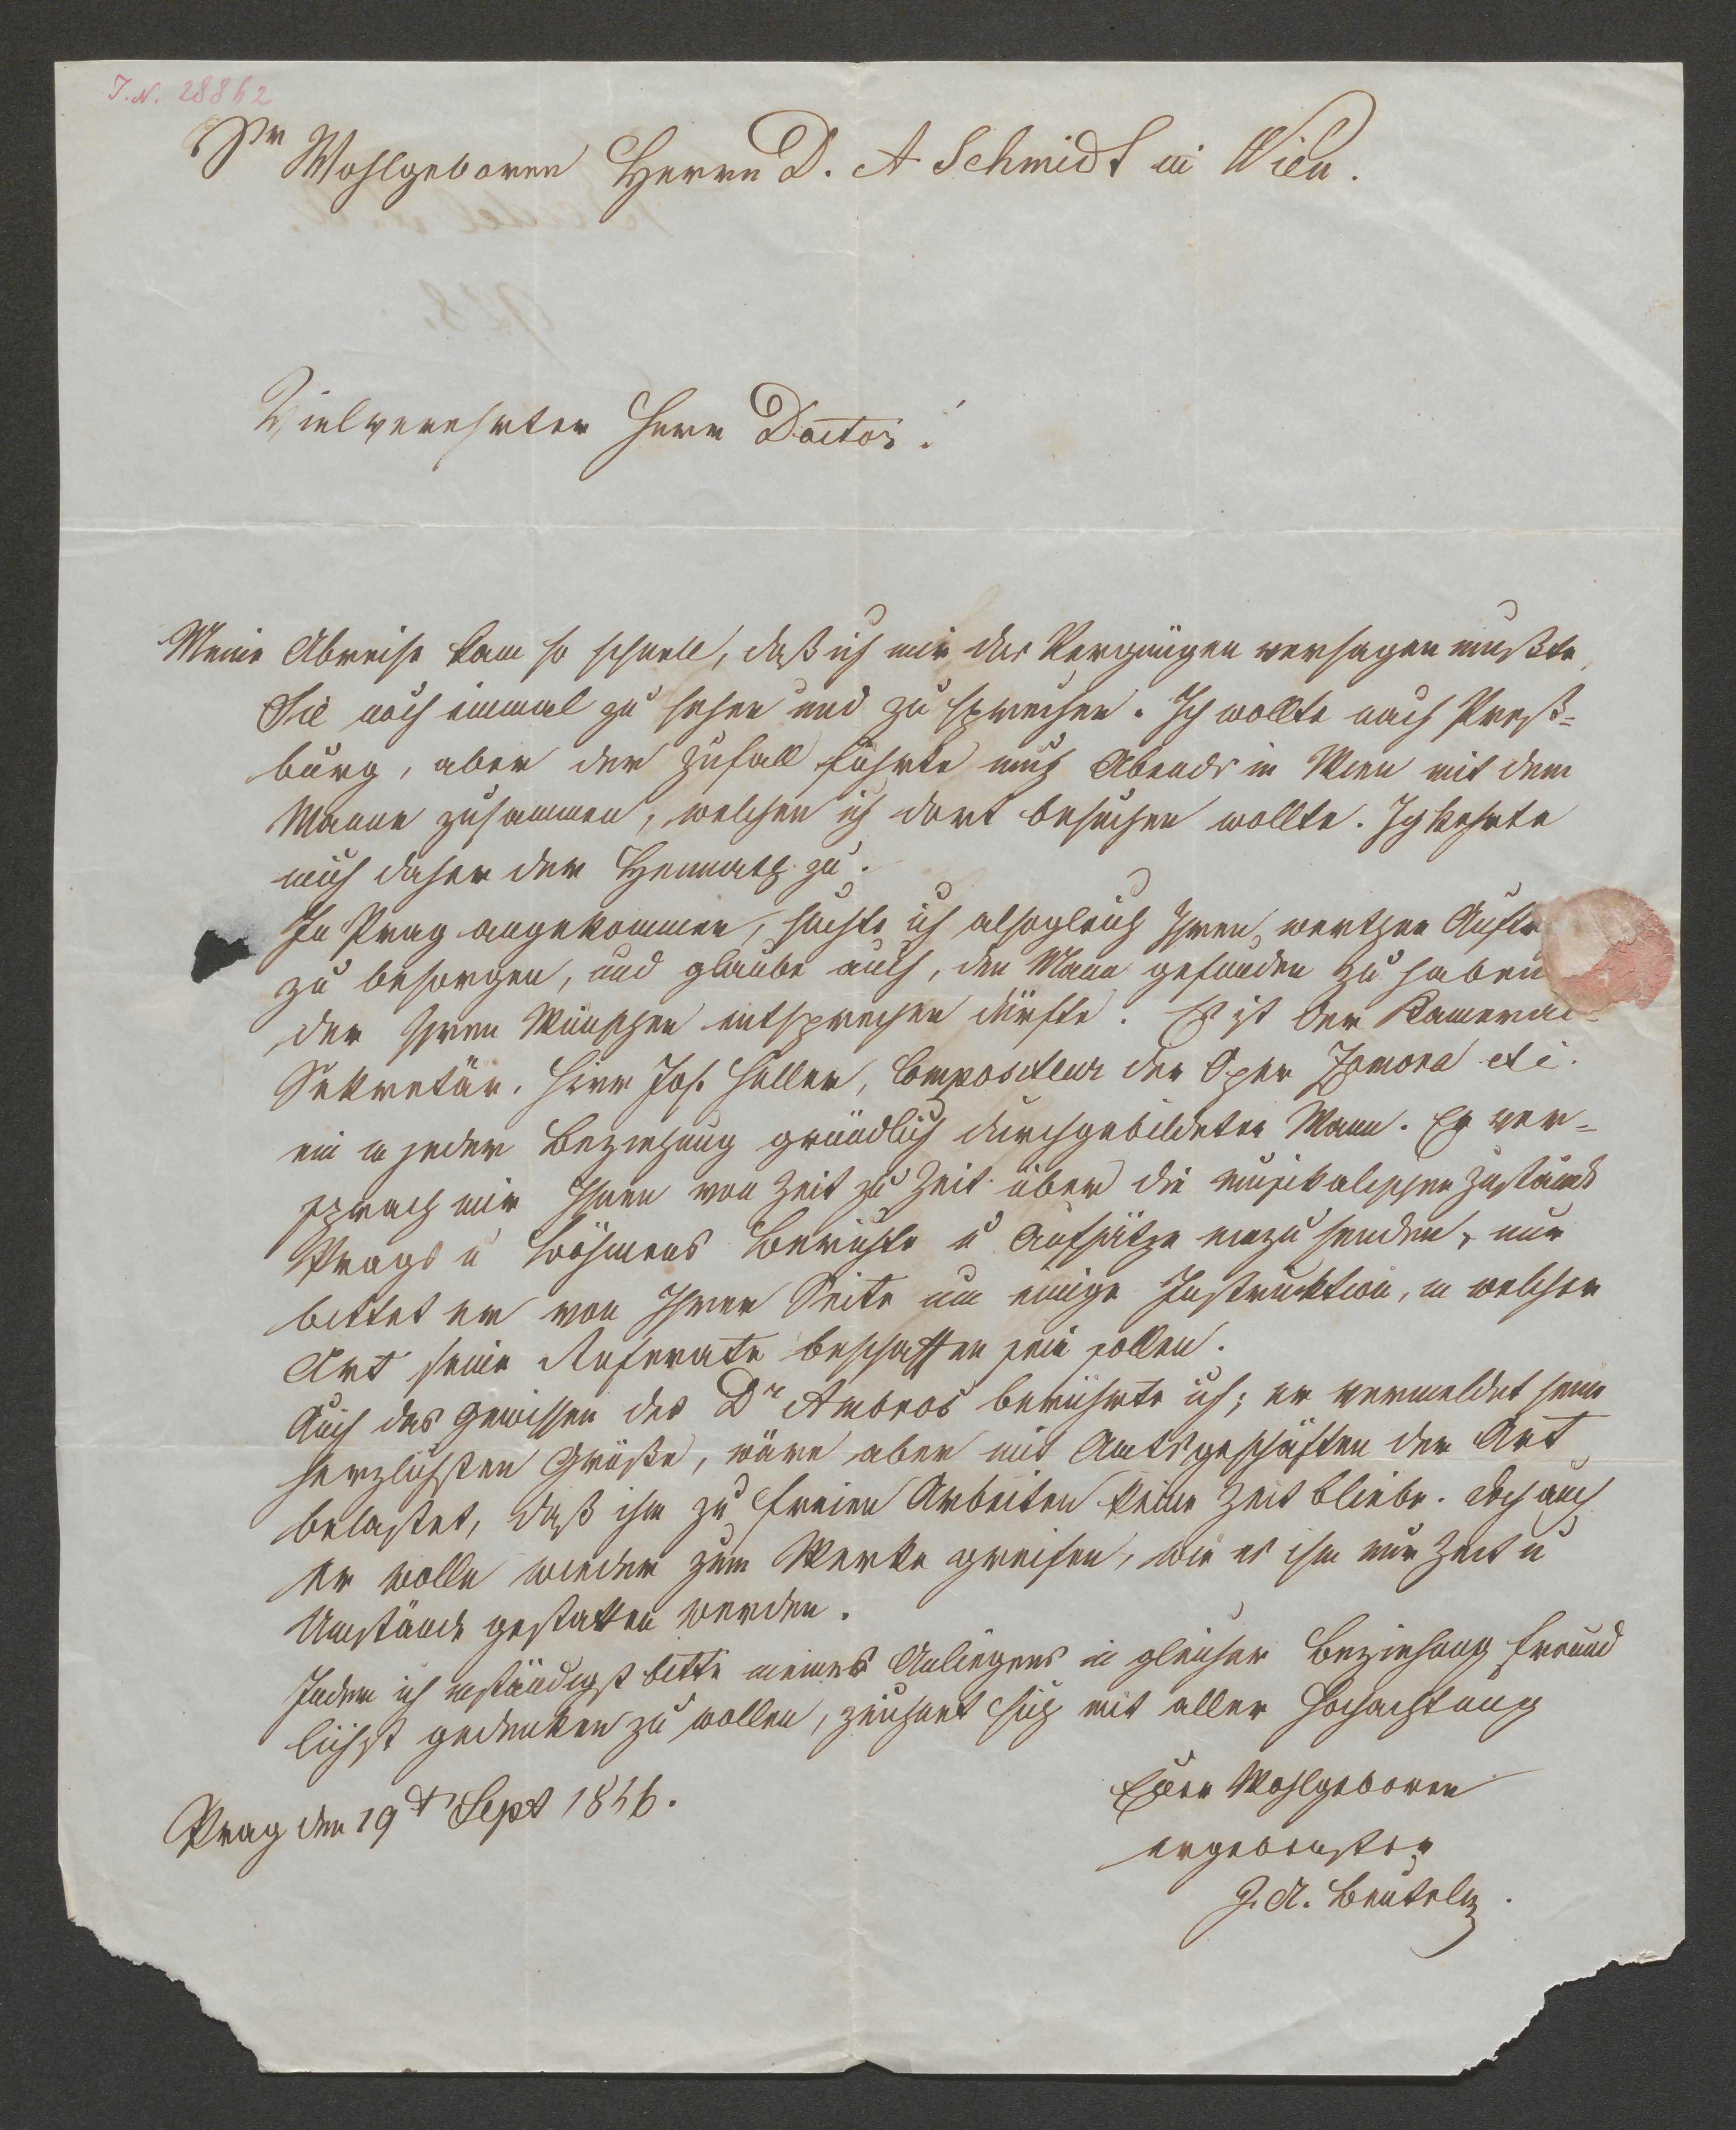 J. N. 28862
Sr Wohlgeboren Herrn D. A Schmidt in Wien.
Vielverehrter Herr Doctor!
Meine Abreise kam so schnell, daß ich mir das Vergnügen versagen mußte
Sie noch einmal zu sehen und zu sprechen. Ich wollte nach Preß-
burg, aber der Zufall führte mich Abends in Wien mit dem
Manne zusammen, welchen ich dort besuchen wollte. Ich kehrte
mich daher der Heimath zu.
In Prag angekommen, suchte ich alsogleich Ihren werthen Auftr
zu besorgen, und glaube auch, den Mann gefunden zu haben
der Ihren Wünschen entsprechen dürfte. Es ist der Kameral-
Sekretär. Herr Jos. Heller, Compositeur der Oper Zamora etc.
ein in jeder Beziehung gründlich durchgebildeter Mann. Er ver-
sprach mir Ihnen von Zeit zu Zeit über die musikalischen Zustände
Prags u Böhmens Berichte u Aufsätze einzusenden, nur
bittet er von Ihrer Seite um einige Instruktion, in welcher
Art seine Referate beschaffen sein sollen.
Auch das Gewissen des Dr Ambros berührte ich; er vermeldet seine
herzlichsten Grüße, wäre aber mit Amtsgeschäften der Art
belastet, daß ihm zu freien Arbeiten keine Zeit bliebe. doch auch
er wolle wieder zum Werke greifen, wie es ihm nur Zeit u
Umstände gestatten werden.
Indem ich inständigst bitte meines Anliegens in gleicher Beziehung freund
lichst gedenken zu wollen, zeichnet sich mit aller Hochachtung
Euer Wohlgeboren
Prag den 19t Sept 1846.
ergebenster
J. A.